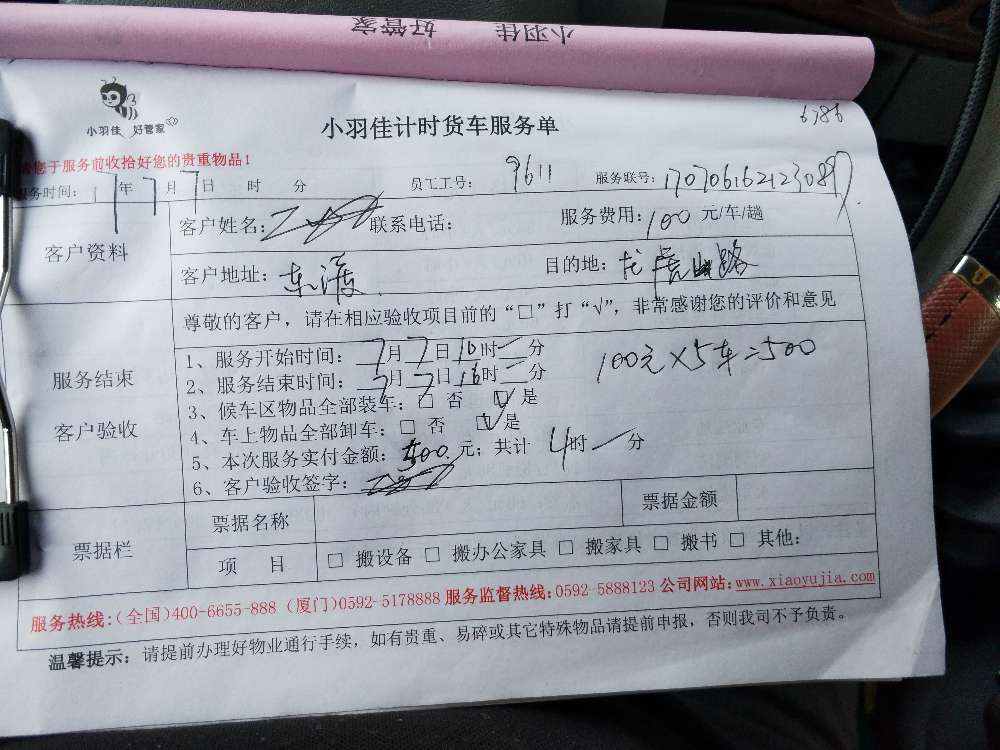 小羽佳 好管家
小羽佳 好管家
小羽佳计时货车服务单
6786
请您于服务前收拾好您的贵重物品！
服务时间：17年7月7日 时 分 员工工号：9611 服务联号：1707061621230897
客户资料
客户姓名： 联系电话： 服务费用：100元/车/趟
客户地址：东渡 目的地：龙虎山路
尊敬的客户，请在相应验收项目前的“□”打“√”，非常感谢您的评价和意见
服务结束
客户验收
1、服务开始时间：7月7日10时一分
2、服务结束时间：7月7日16时二分
100元×5车=500
3、候车区物品全部装车：□ 否 ☑ 是
4、车上物品全部卸车：□ 否 ☑ 是
5、本次服务实付金额：500元；共计 4时一分
6、客户验收签字：
票据栏
票据名称 票据金额
项 目 □ 搬设备 □ 搬办公家具 □ 搬家具 □ 搬书 □ 其他：
服务热线：(全国)400-6655-888 (厦门)0592-5178888 服务监督热线：0592-5888123 公司网站：www.xiaoyujia.com
温馨提示：请提前办理好物业通行手续，如有贵重、易碎或其它特殊物品请提前申报，否则我司不予负责。